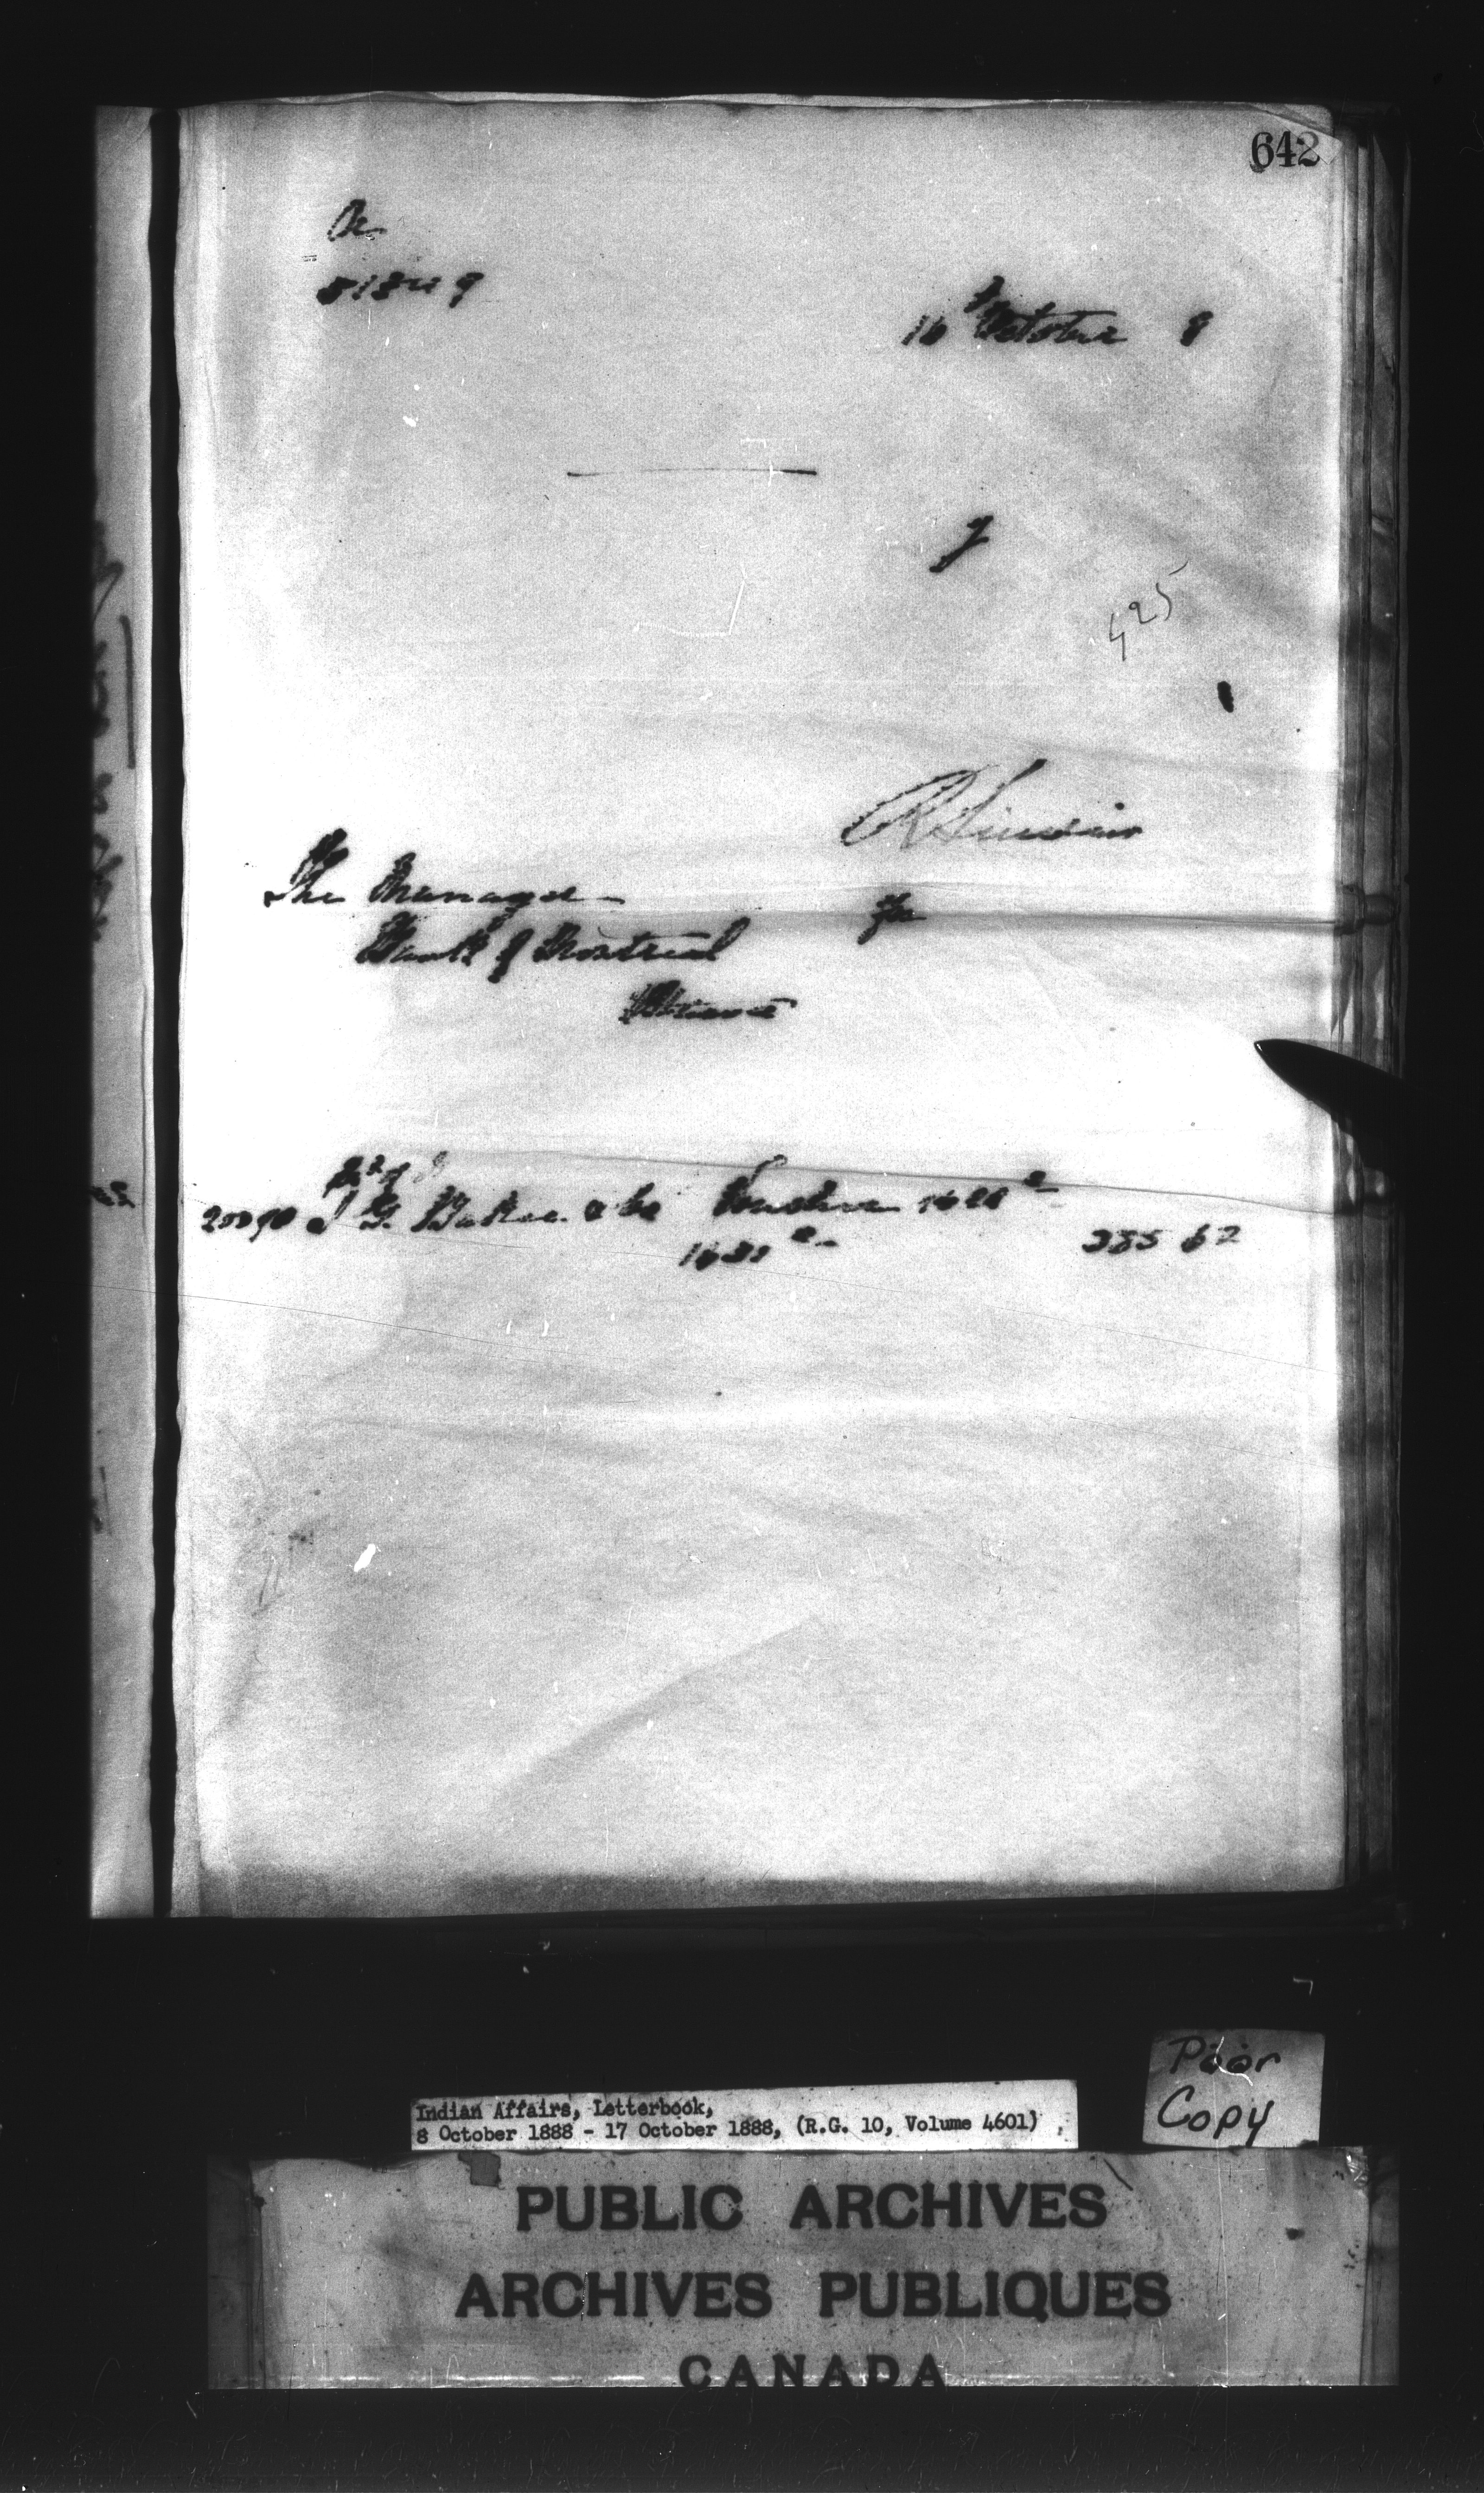 642
16 October 8
425
R Sinclair
The Manager
Bank of Montreal
Ottawa
J G. Baker & Co Voucher
385 62
Poor
Copy
Indian Affairs, Letterbook,
8 October 1888 - 17 October 1888, (R.G. 10, Volume 4601)
PUBLIC ARCHIVES
ARCHIVES PUBLIQUES
CANADA